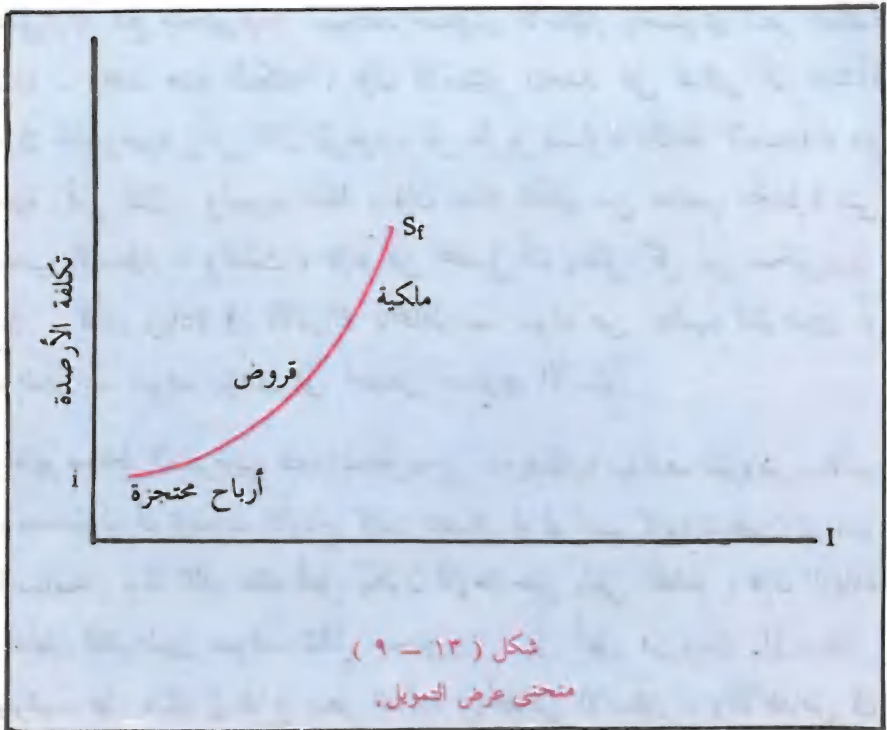 تكلفة الأرصدة
Sf
ملكية
قروض
i
أرباح محتجزة
I
شكل ( ١٣ – ٩ )
منحنى عرض التمويل.